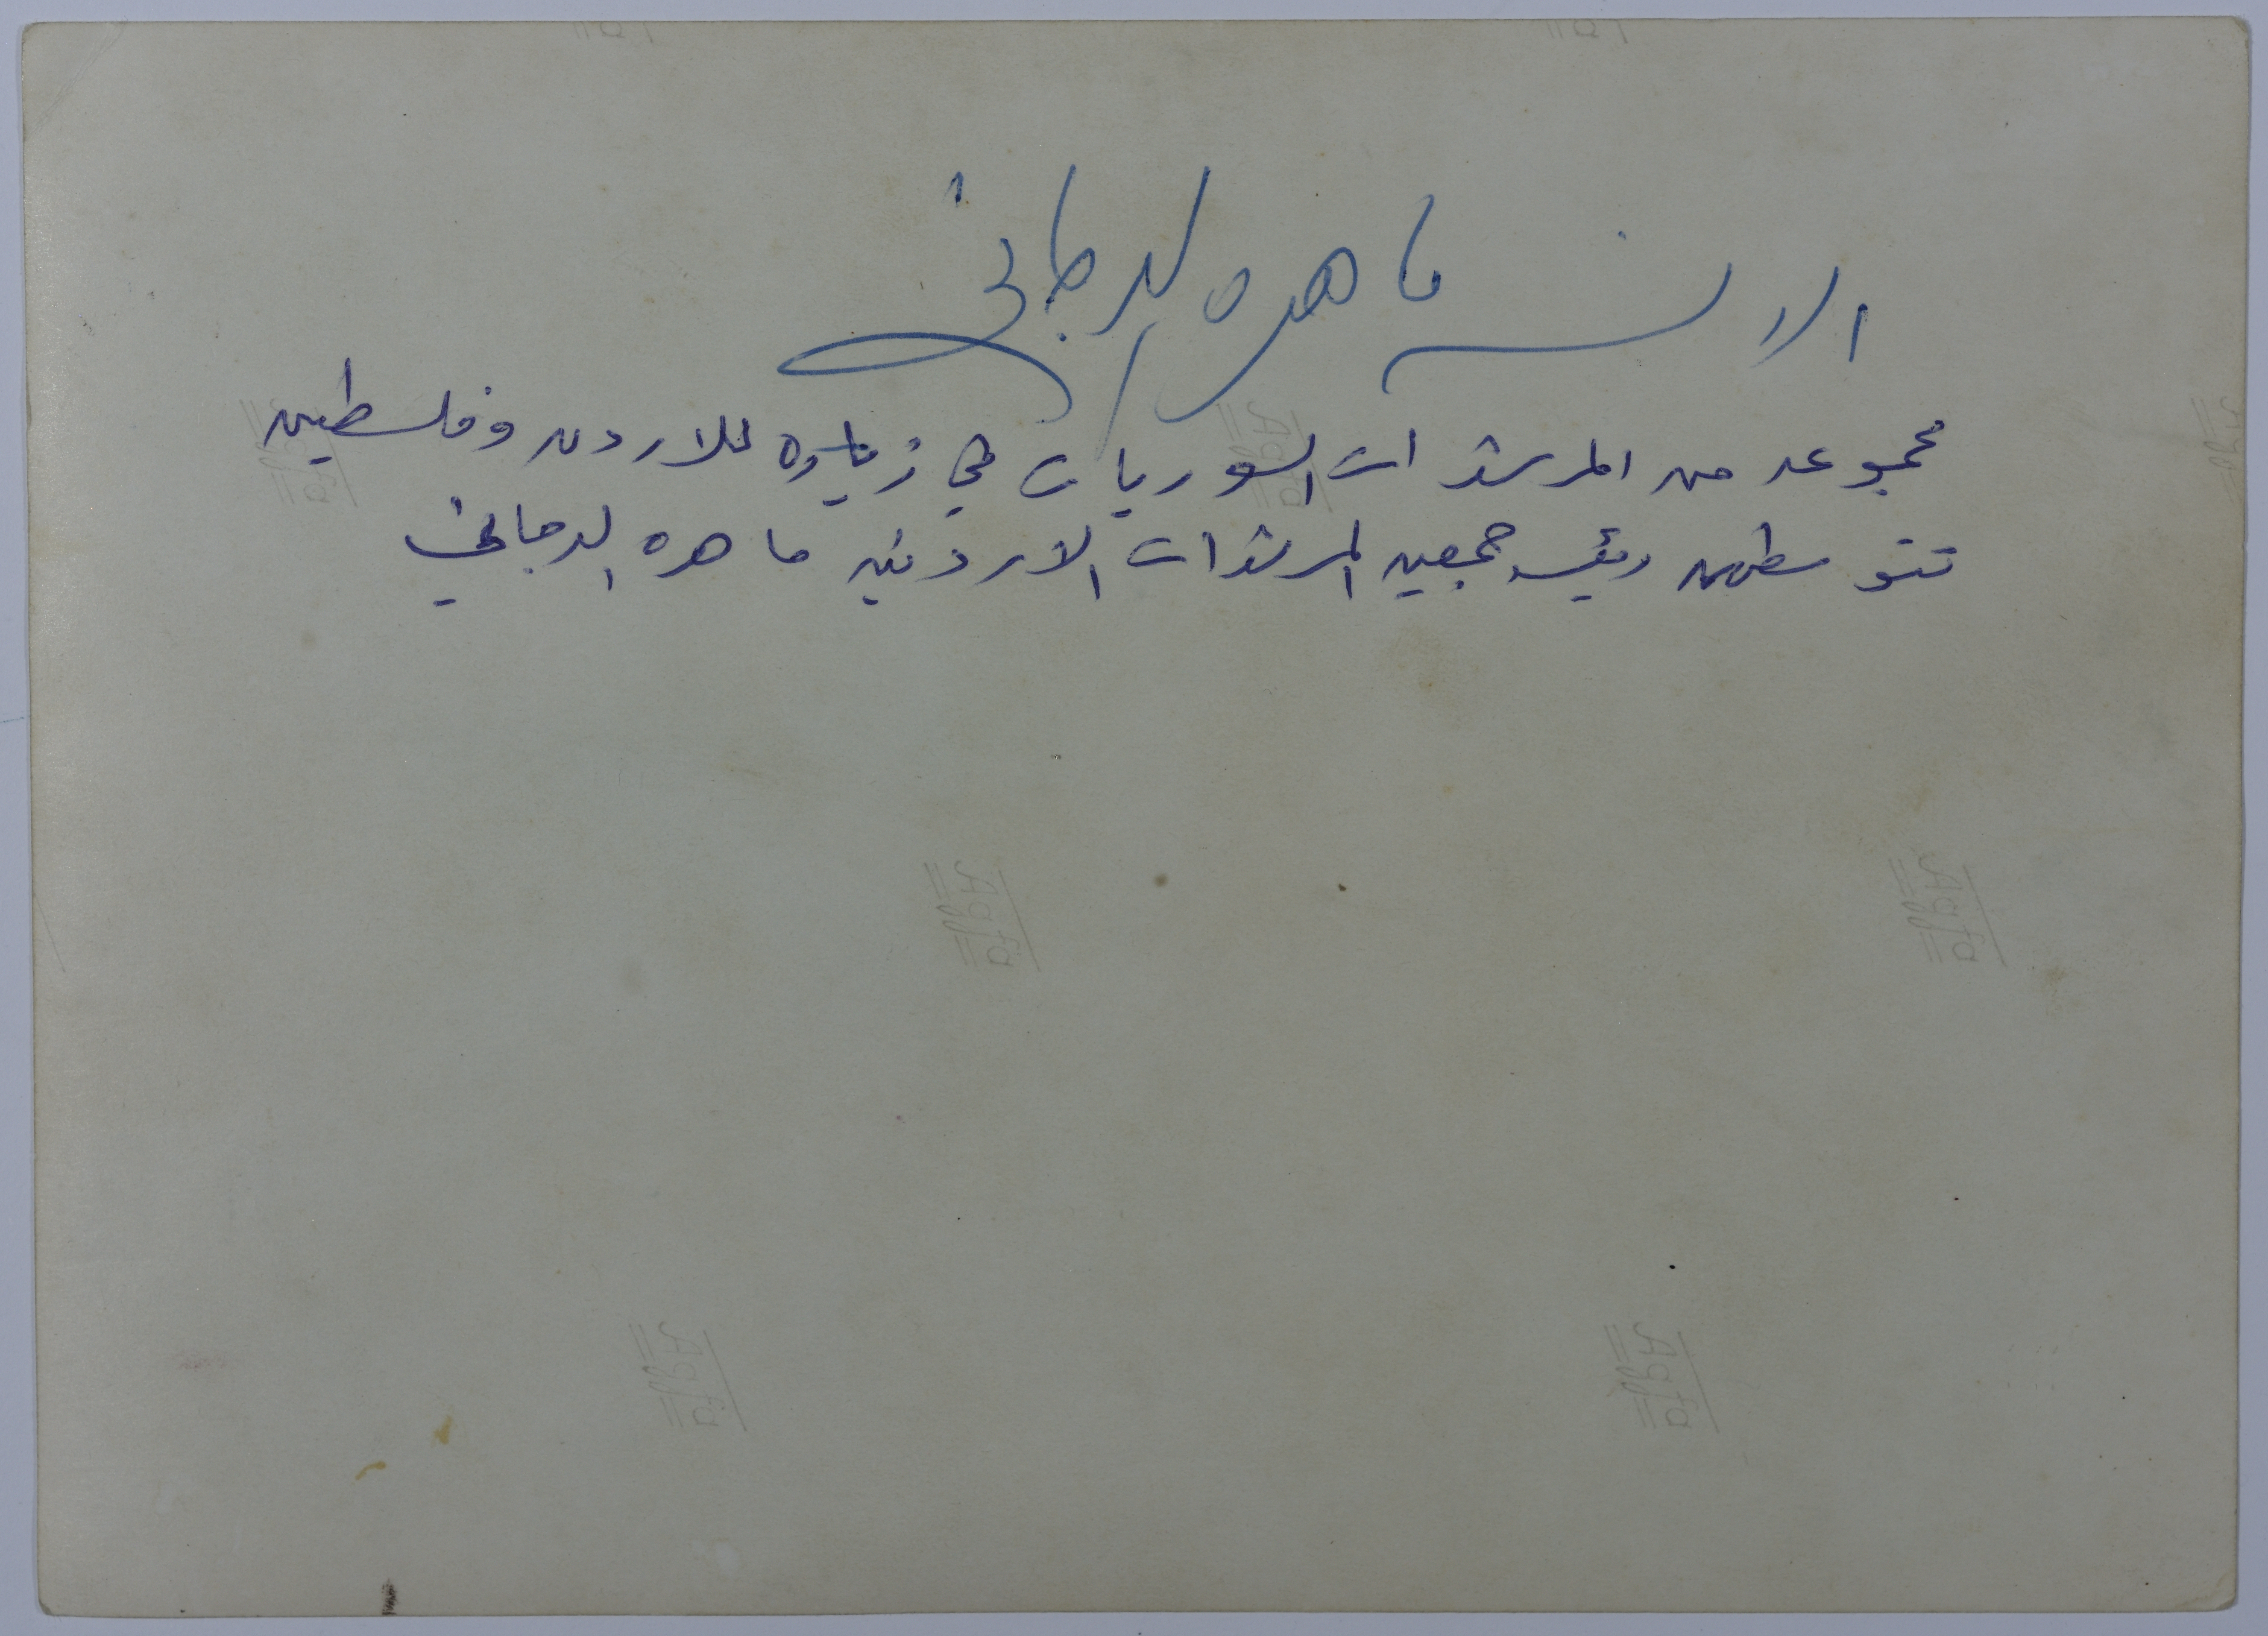 الانسه ماهره الدجاني
مجموعه من المرشدات السوريات في زياره للاردن وفلسطين
تتوسطهن رئيسه جمعيه المرشدات الاردنيه ماهره الدجاني
Agfa
Agfa
Agfa
Agfa
Agfa
Agfa